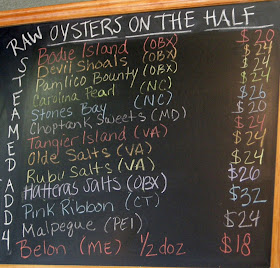 RAW OYSTERS ON THE HALF
STEAMED ADD 4
Bodie Island (OBX) $20
Devil Shoals (OBX) $24
Pamlico Bounty (OBX) $24
Carolina Pearl (NC) $24
Stones Bay (NC) $20
Choptank Sweets (MD) $24
Tangier Island (VA) $24
Olde Salts (VA) $24
Ruby Salts (VA) $24
Hatteras Salts (OBX) $26
Pink Ribbon (CT) $32
Malpeque (PEI) $24
Belon (ME) 1/2 doz $18